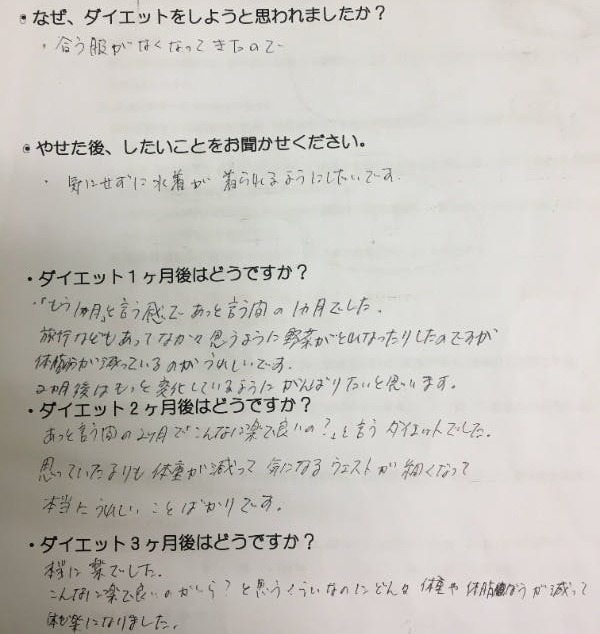 ◉なぜ、ダイエットをしようと思われましたか？
・合う服がなくなってきたので
◉やせた後、したいことをお聞かせください。
・気にせずに水着が着られるようにしたいです。
・ダイエット１ヶ月後はどうですか？
・「もう1カ月」と言う感じで あっと言う間の1カ月でした。
旅行などもあってなかなか思うように野菜がとれなったりしたのですが
体脂肪が減っているのがうれしいです。
2カ月後はもっと変化しているようにがんばりたいと思います。
・ダイエット２ヶ月後はどうですか？
あっと言う間の2ヶ月で「こんなに楽で良いの？」と言うダイエットでした。
思っていたよりも体重が減って気になるウエストが細くなって
本当にうれしいことばかりです。
・ダイエット３ヶ月後はどうですか？
本当に楽でした。
こんなに楽で良いのかしら？と思うくらいなのにどんな体重や体脂肪が減って
体も楽になりました。